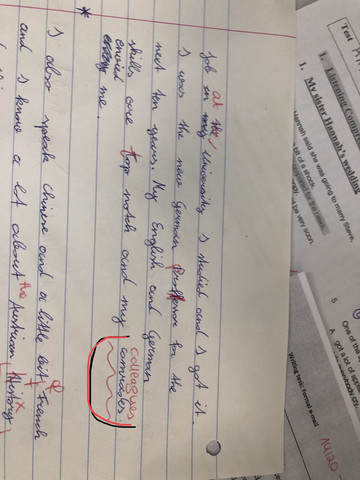 at the
Job in my University I studied and I got it.
I was the new German Professor for the
next ten years. My English and German
colleagues
skills are top notch and my comrades
envied me.
I also speak Chinese and a little bit of French
and I know a lot about the Austrian History
Test
1. Listening
1. My sister Hannah's wedding
Hannah said she was going to marry Steve.
bit of a shock.
be very soon.
5
One of the
A got a lot of
Writing tests: formal e-mail
14/20